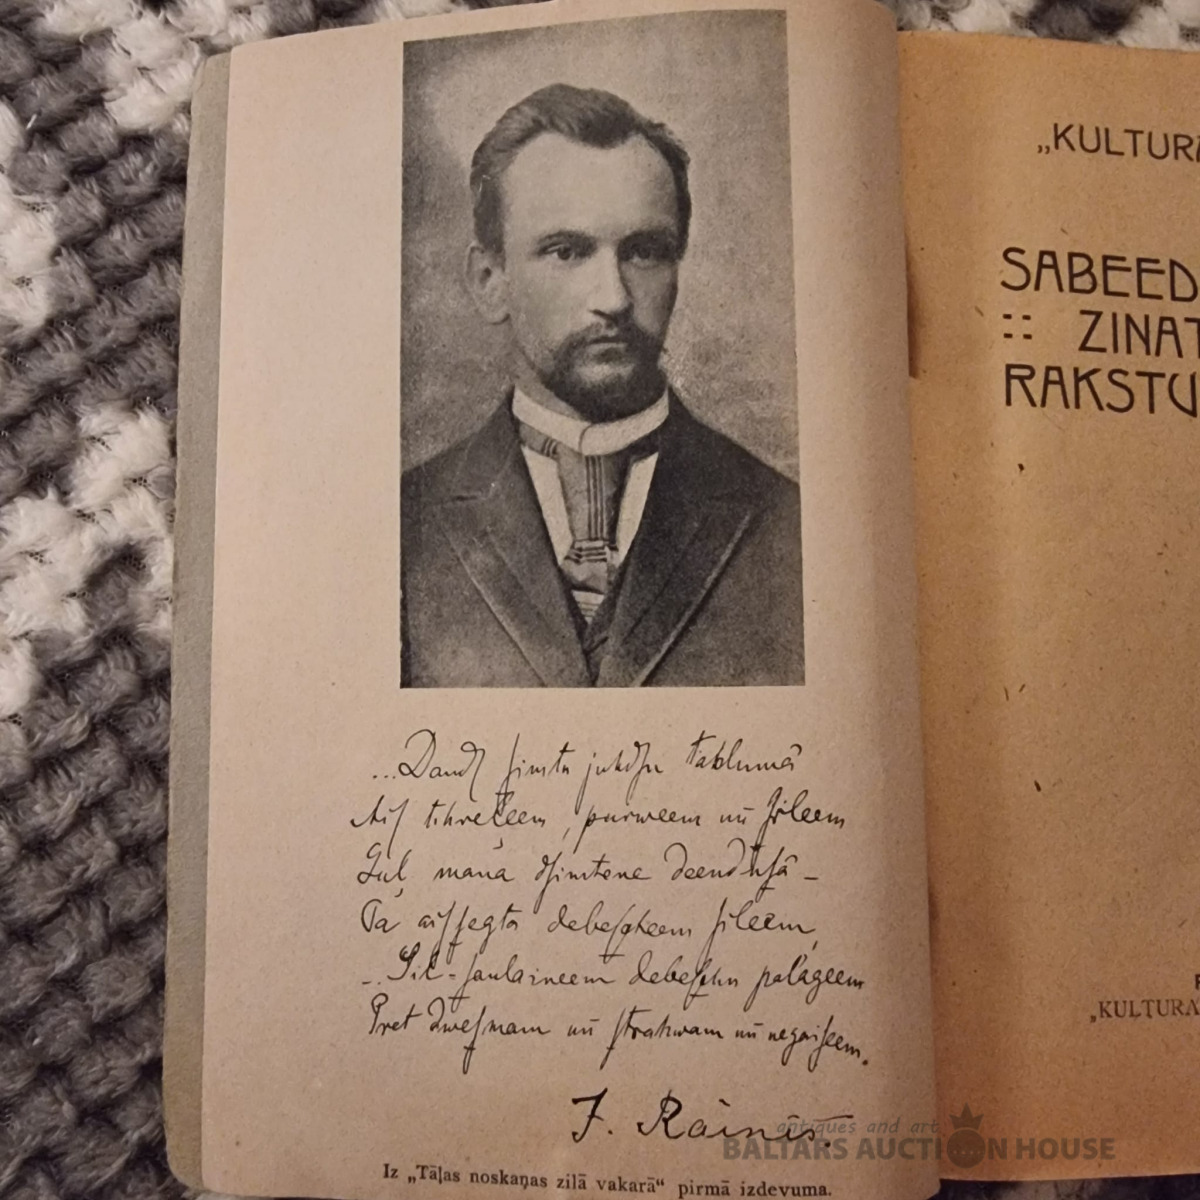 ...Daudſ ſimtu juhdſu tahlumâ
Aiſ tihreļeem, purweem un ſileem
Guļ mana dſimtene deendusâ –
Ta aiſſegta debeſcheem ſileem,
– Sil-ſaulaineem debeſchu palageem
Pret dweſmam un ſtrahwam un negaiſeem.
J. Rainis.
Iz „Tāļas noskaņas zilā vakarā“ pirmā izdevuma.
„KULTURA
SABEED
:: ZINAT
RAKSTU
„KULTURA
antiques and art
BALTARS AUCTION HOUSE